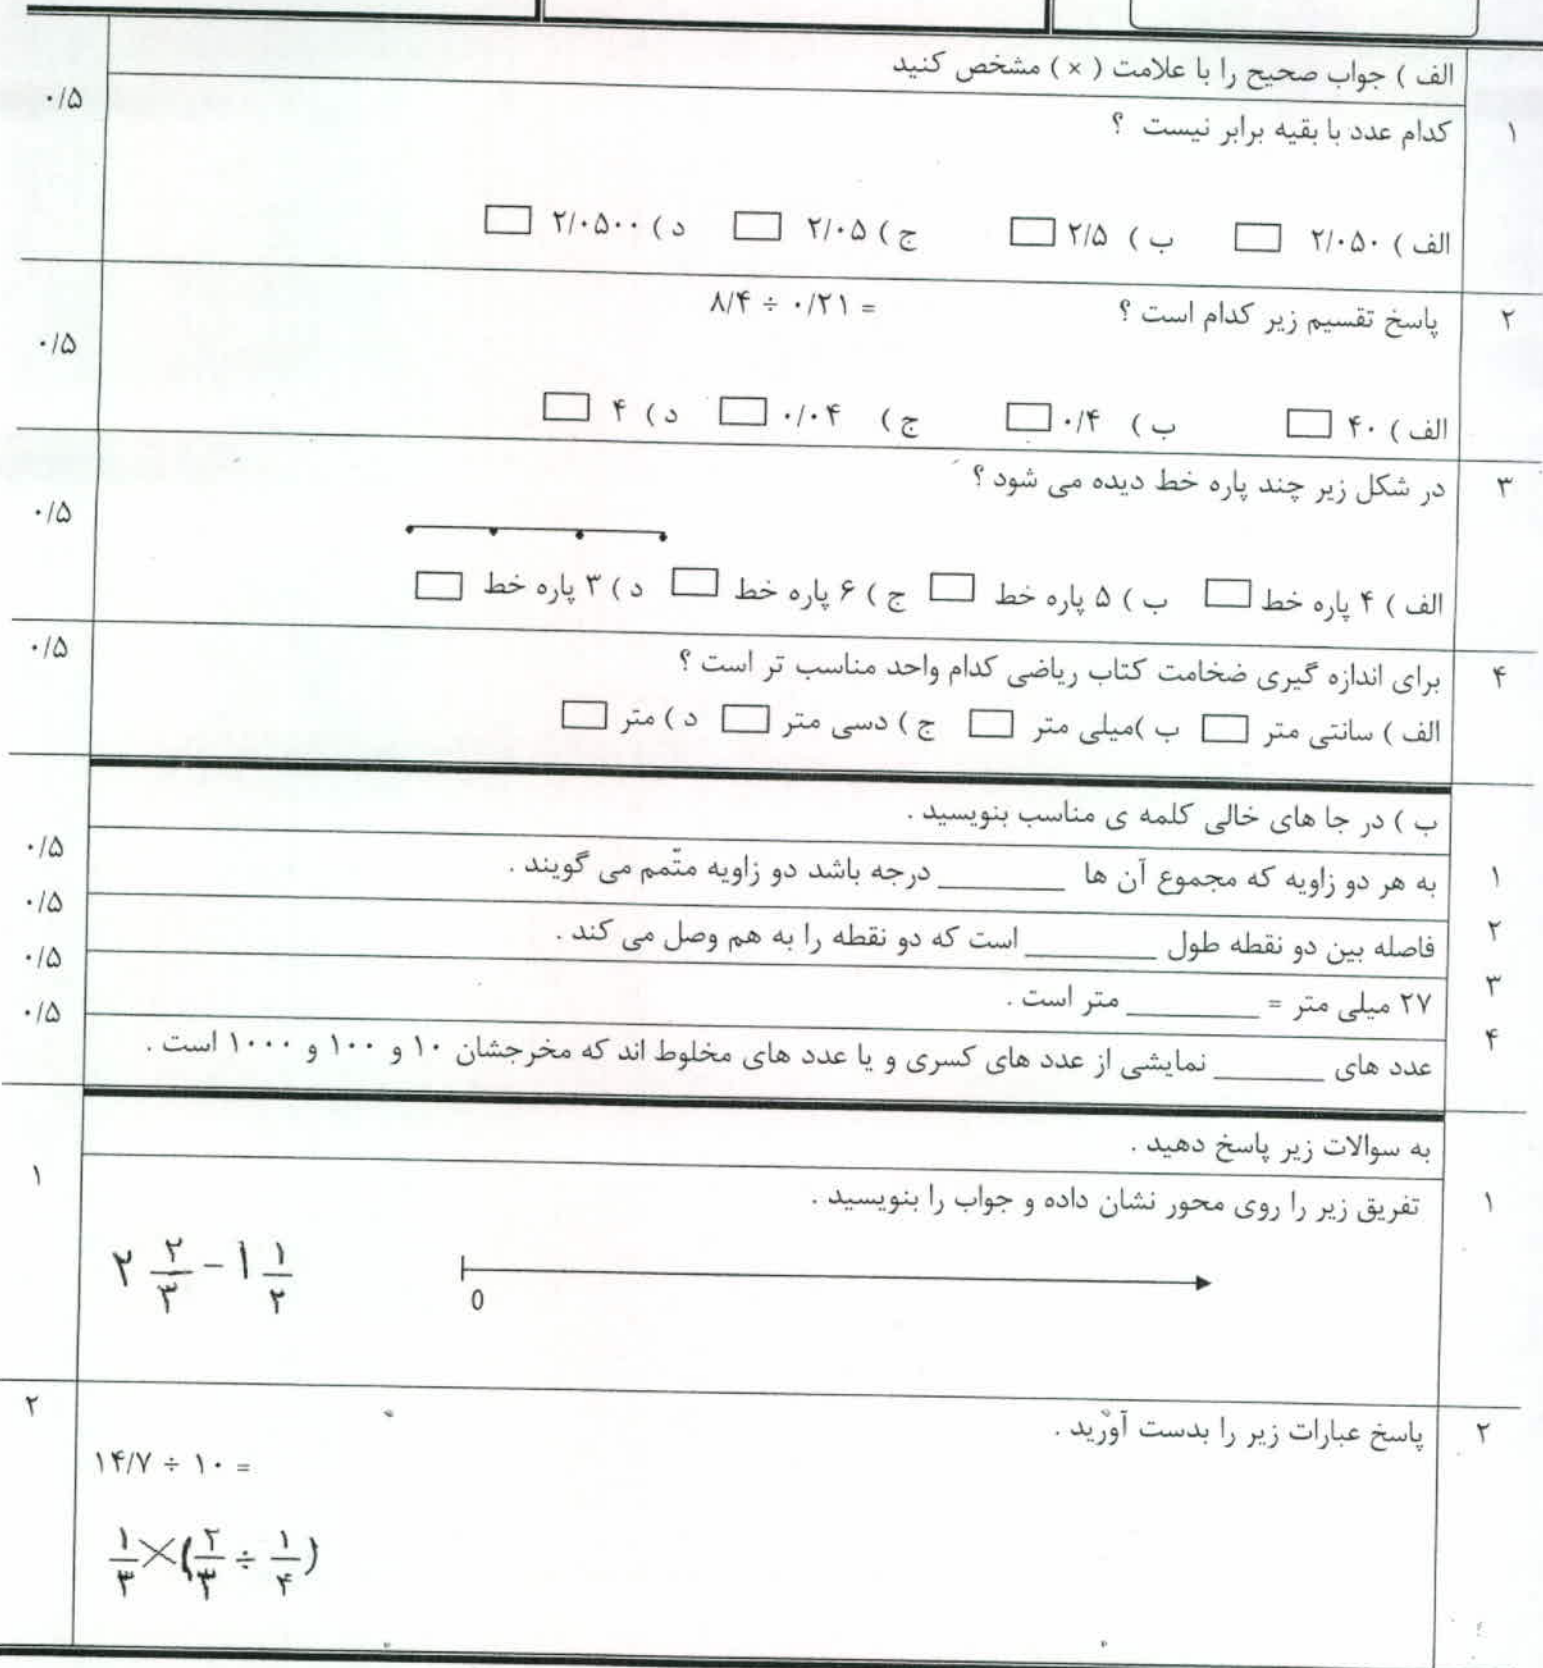 الف ) جواب صحیح را با علامت ( × ) مشخص کنید
۰/۵
۱ کدام عدد با بقیه برابر نیست ؟
الف ) ۲/۰۵۰ ب ) ۲/۵ ج ) ۲/۰۵ د ) ۲/۰۵۰۰
۲ پاسخ تقسیم زیر کدام است ؟ ۸/۴ ÷ ۰/۲۱ =
۰/۵
الف ) ۴۰ ب ) ۰/۴ ج ) ۰/۰۴ د ) ۴
۳ در شکل زیر چند پاره خط دیده می شود ؟
۰/۵
الف ) ۴ پاره خط ب ) ۵ پاره خط ج ) ۶ پاره خط د ) ۳ پاره خط
۴ برای اندازه گیری ضخامت کتاب ریاضی کدام واحد مناسب تر است ؟ ۰/۵
الف ) سانتی متر ب )میلی متر ج ) دسی متر د ) متر
ب ) در جا های خالی کلمه ی مناسب بنویسید .
۱ به هر دو زاویه که مجموع آن ها ________ درجه باشد دو زاویه متّمم می گویند . ۰/۵
۲ فاصله بین دو نقطه طول ________ است که دو نقطه را به هم وصل می کند . ۰/۵
۳ ۲۷ میلی متر = ________ متر است . ۰/۵
۴ عدد های _______ نمایشی از عدد های کسری و یا عدد های مخلوط اند که مخرجشان ۱۰ و ۱۰۰ و ۱۰۰۰ است . ۰/۵
به سوالات زیر پاسخ دهید .
۱ تفریق زیر را روی محور نشان داده و جواب را بنویسید . ۱
۲ ۲/۳ − ۱ ۱/۲
0
۲ پاسخ عبارات زیر را بدست آورید . ۲
۱۴/۷ ÷ ۱۰ =
۱/۳ × (۲/۳ ÷ ۱/۴)